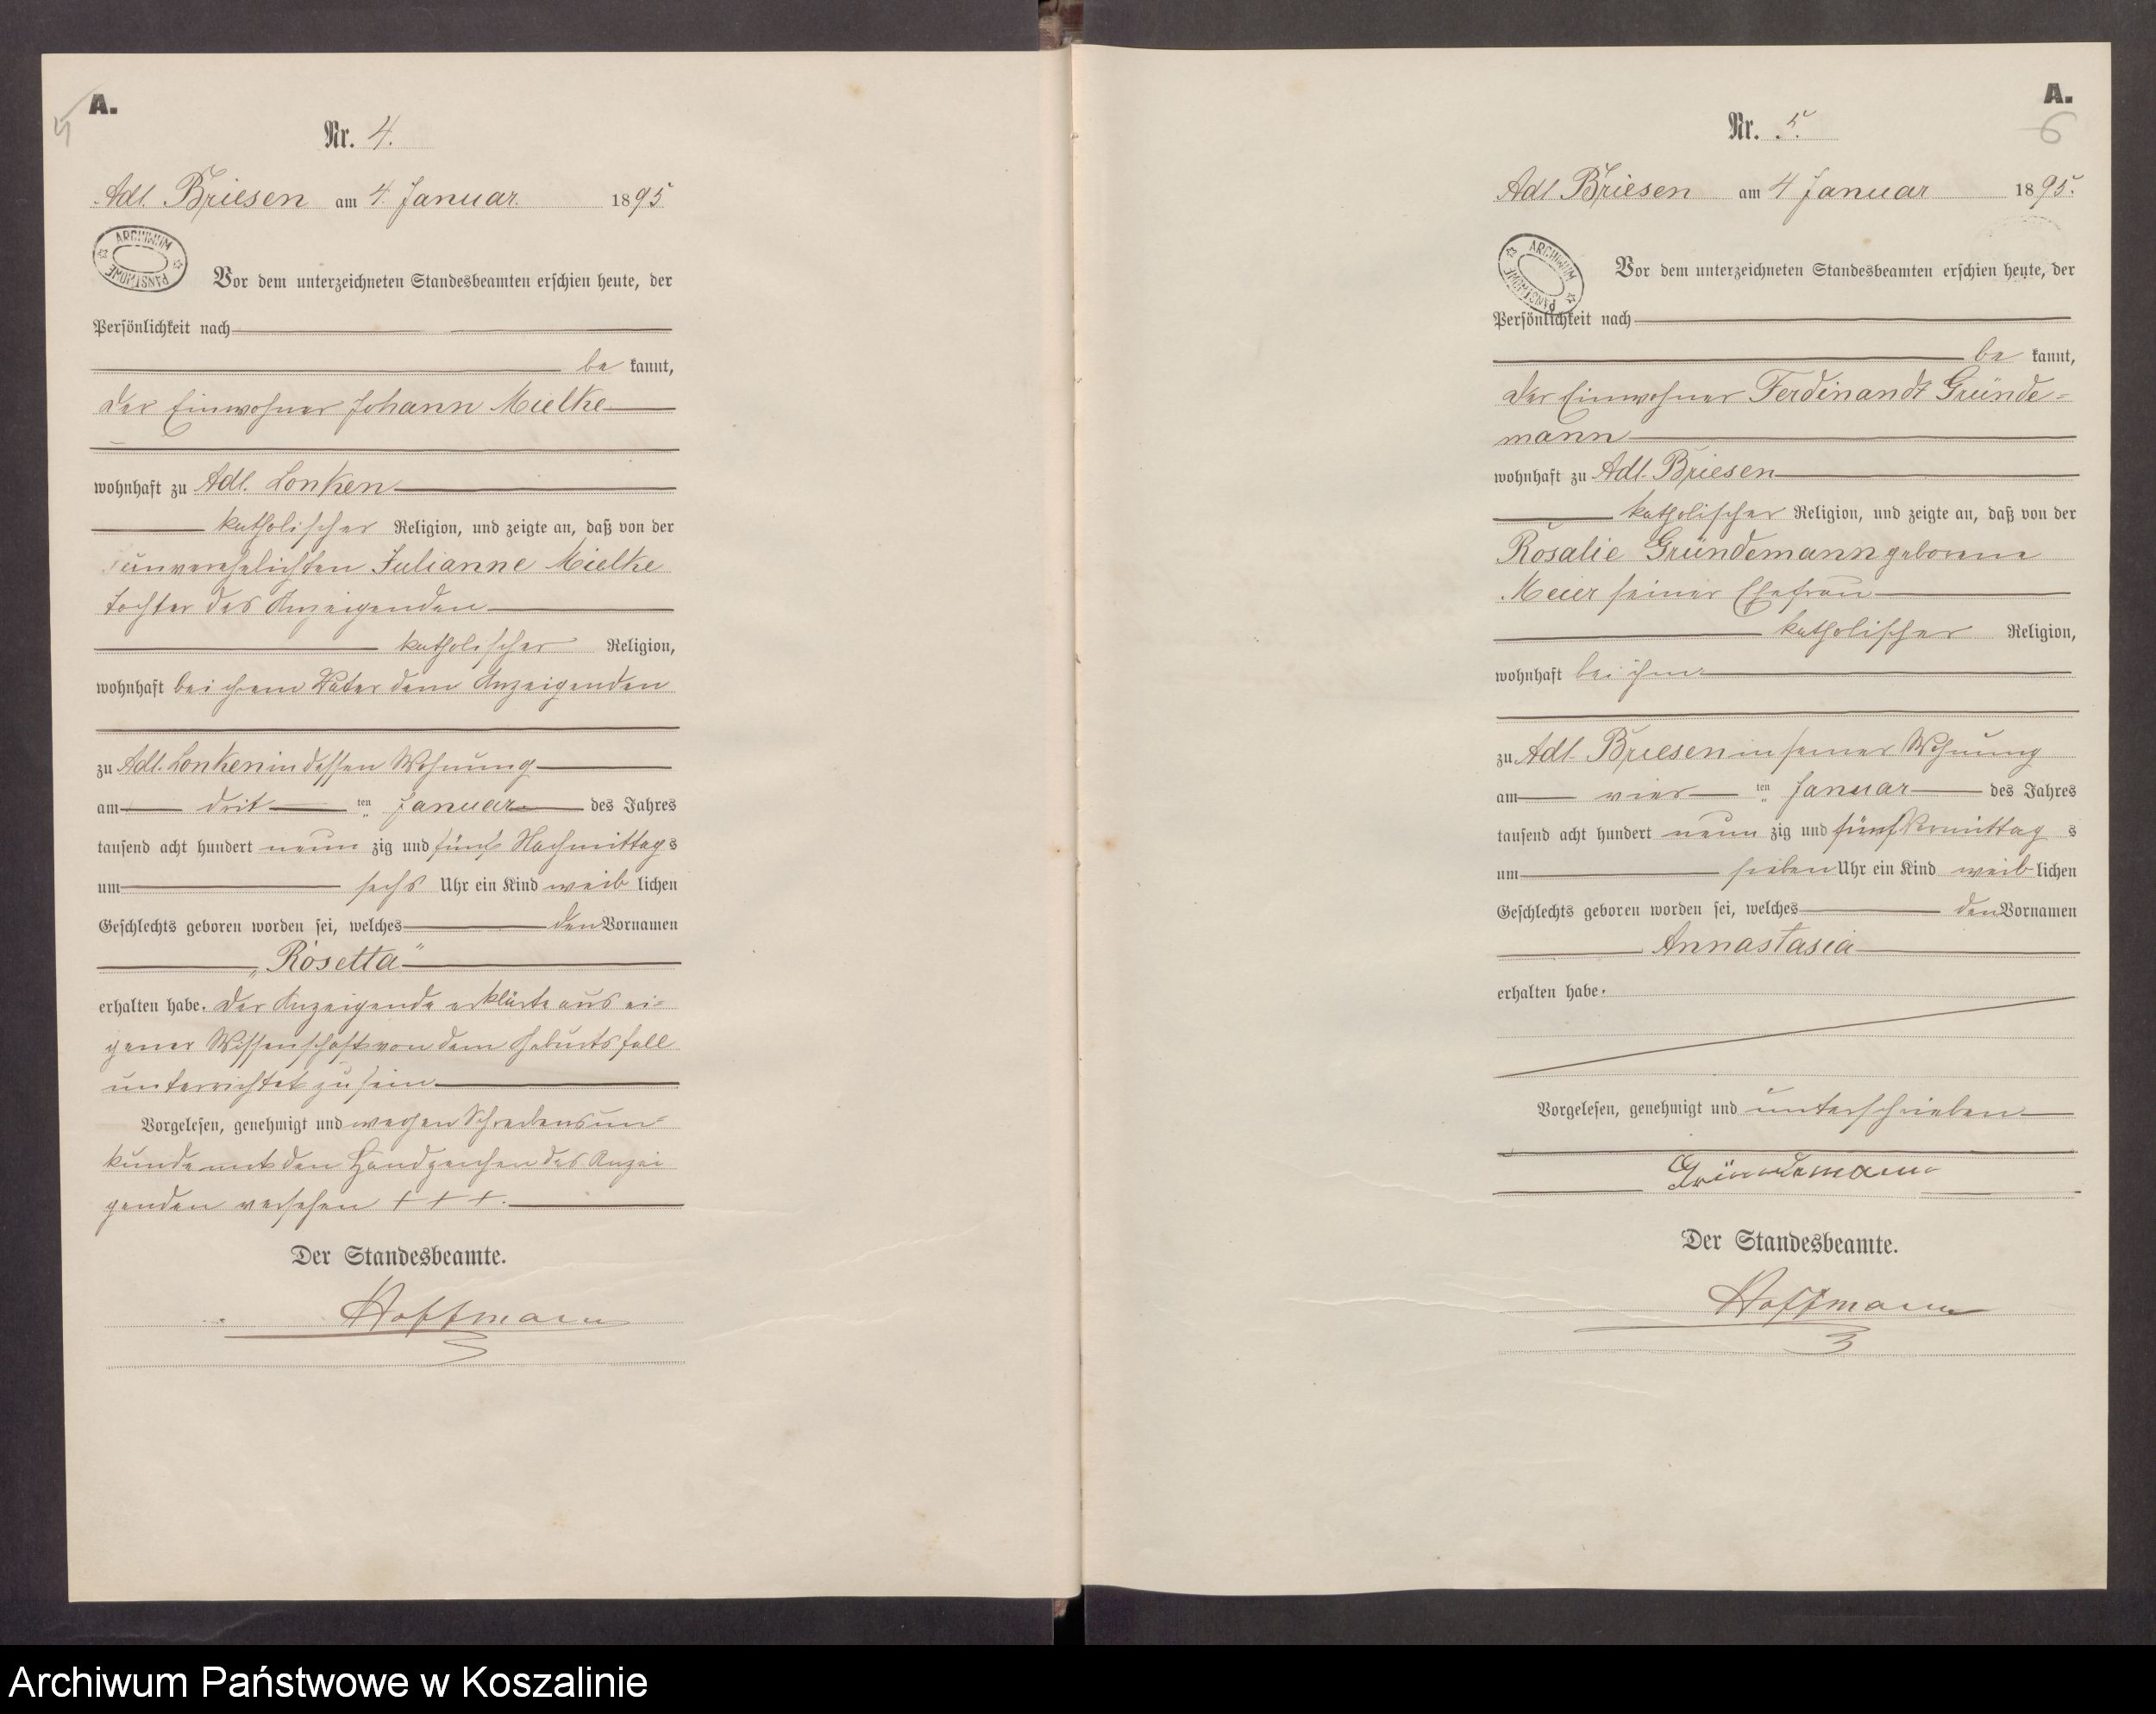 A.
4
Nr. 4.
Adl. Briesen am 4. Januar. 1895
ARCHIWUM PAŃSTWOWE
Vor dem unterzeichneten Standesbeamten erschien heute, der
Persönlichkeit nach
be kannt,
der Einwohner Johann Mielke
wohnhaft zu Adl. Lonken
katholischer Religion, und zeigte an, daß von der
unverehelichten Julianne Mielke
Tochter des Anzeigenden
katholischer Religion,
wohnhaft bei ihrem Vater dem Anzeigenden
zu Adl. Lonken in dessen Wohnung
am drit ten Januar des Jahres
tausend acht hundert neun zig und fünf Nachmittags
um sechs Uhr ein Kind weib lichen
Geschlechts geboren worden sei, welches den Vornamen
„Rosetta"
erhalten habe. Der Anzeigende erklärte aus ei=
gener Wissenschaft von dem Geburtsfall
unterrichtet zu sein
Vorgelesen, genehmigt und wegen Schreibensun-
kunde mit den Handzeichen des Anzei
genden versehen + + +.
Der Standesbeamte.
Hoffmann
A.
6
Nr. 5.
Adl Briesen am 4 Januar 1895.
ARCHIWUM PAŃSTWOWE
Vor dem unterzeichneten Standesbeamten erschien heute, der
Persönlichkeit nach
be kannt,
der Einwohner Ferdinandt Gründe=
mann
wohnhaft zu Adl. Briesen
katholischer Religion, und zeigte an, daß von der
Rosalie Gründemann geborene
Meier seiner Ehefrau
katholischer Religion,
wohnhaft bei ihm
zu Adl. Briesen in seiner Wohnung
am vier ten Januar des Jahres
tausend acht hundert neun zig und fünf Vormittag s
um sieben Uhr ein Kind weib lichen
Geschlechts geboren worden sei, welches den Vornamen
Annastasia
erhalten habe.
Vorgelesen, genehmigt und unterschrieben
Gründemann
Der Standesbeamte.
Hoffmann
Archiwum Państwowe w Koszalinie